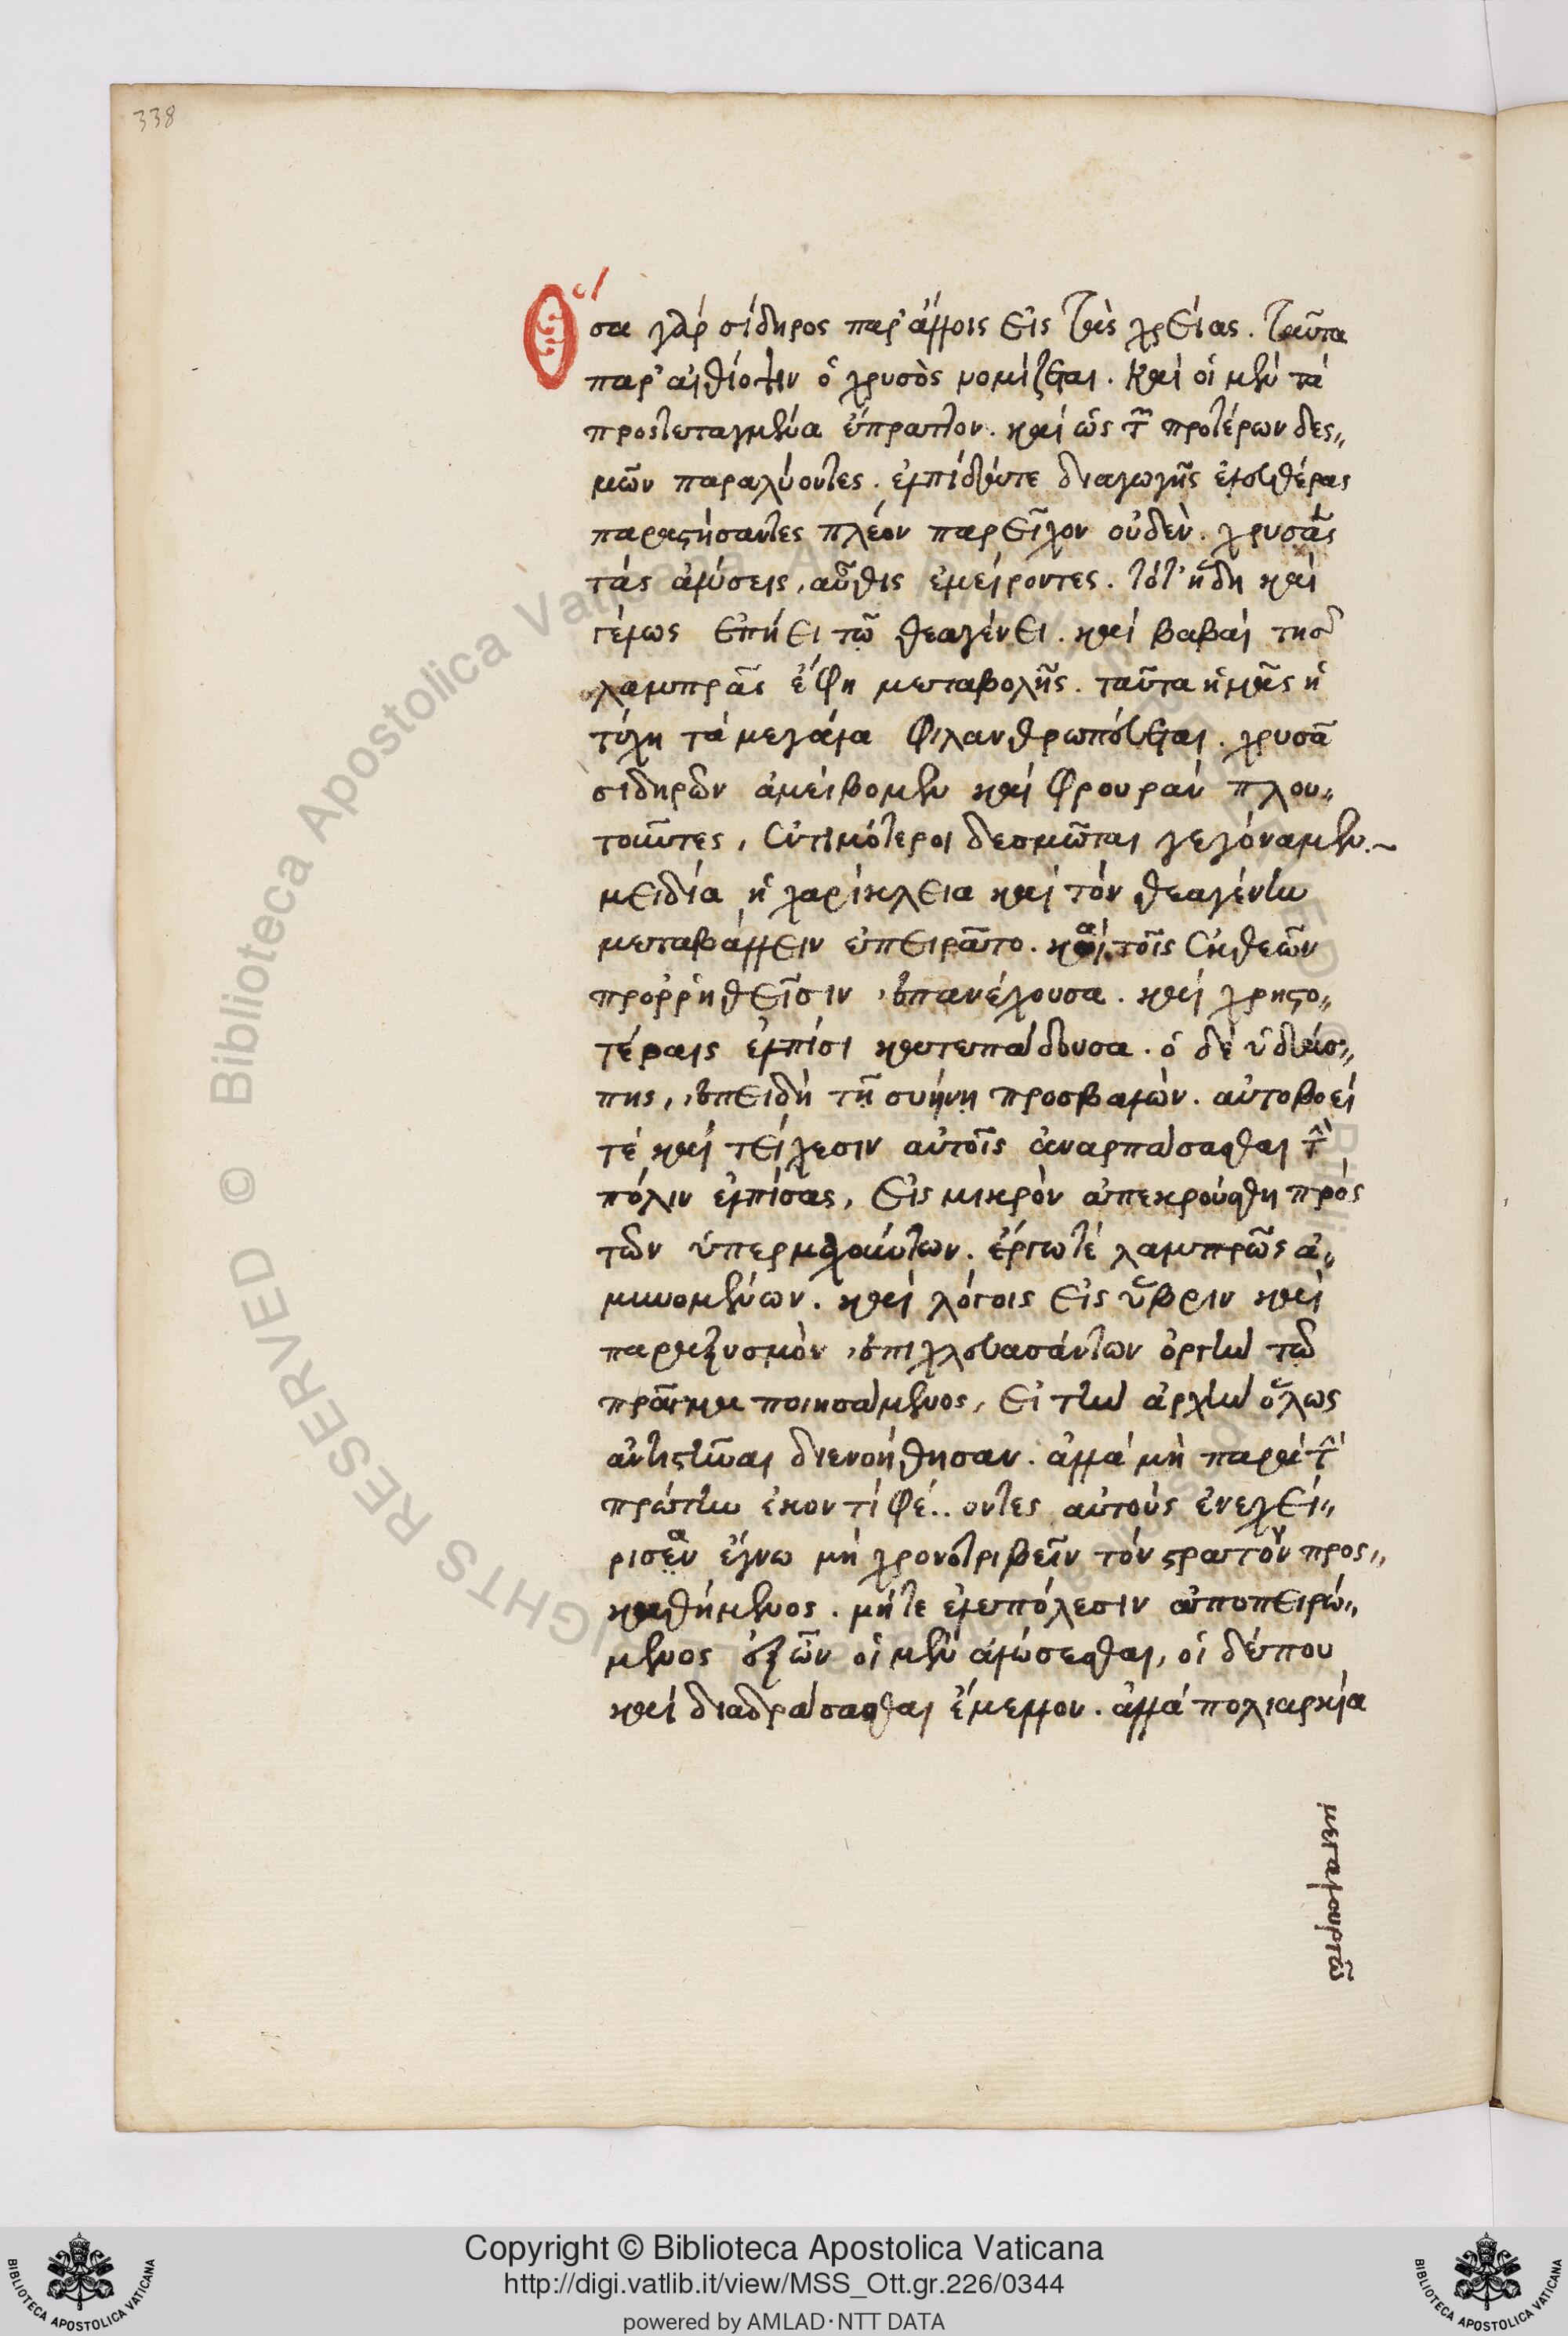 338
Ὅσα γὰρ σίδηρος παρ' ἄλλοις εἰς τὰς χρείας. ταῦτα
παρ' αἰθίοψιν ὁ χρυσὸς νομίζεται. καὶ οἱ μὲν τὰ
προστεταγμένα ἔπραττον. καὶ ὡς τῶν προτέρων δεσ,,
μῶν παραλύοντες. ἐλπίδά τε διαγωγῆς ἐλευθέρας
παραστήσαντες πλέον παρεῖχον οὐδὲν. χρυσᾶς
τὰς ἁλύσεις, αὖθις ἐνείροντες. τότ' ἤδη καὶ
γέλως ἐπῄει τῶ θεαγένει. καὶ βαβαὶ τῆς
λαμπρᾶς ἔφη μεταβολῆς. ταῦτα ἡμᾶς ἡ
τύχη τὰ μεγάλα φιλανθρωπεύεται. χρυσᾶ
σιδηρῶν ἀμείβομεν καὶ φρουρὰν πλου,,
τοῦντες, ἐντιμότεροι δεσμῶται γεγόναμεν.~
μειδία ἡ χαρίκλεια καὶ τὸν θεαγένην
μεταβάλλειν ἐπειρᾶτο. καὶ τοῖς ἐκ θεῶν
προρρηθεῖσιν ἐπανέχουσα. καὶ χρηστο,,
τέραις ἐλπίσι κατεπάδουσα. ὁ δὲ ὑδάσ,,
πης, ἐπειδὴ τῆ συήνη προσβαλὼν. αὐτοβοεί
τὲ καὶ τείχεσιν αὐτοῖς ἀναρπάσασθαι τὴν
πόλιν ἐλπίσας, εἰς μικρὸν ἀπεκρούσθη πρὸς
τῶν ὑπερμαχούντων. ἔργω τὲ λαμπρῶς ἀ,,
μυνομένων. καὶ λόγοις εἰς ὕβριν καὶ
παροξυσμὸν ἐπιχλευασάντων ὀργὴν τὸ
πρᾶγμα ποιησάμενος, εἰ τὴν ἀρχὴν ὅλως
ἀντιστῆναι διενοήθησαν. ἀλλὰ μὴ παρὰ τὴν
πρώτην ἑκοντὶ φέ..οντες αὐτοὺς ἐνεχεί,,
ρισαν ἔγνω μὴ χρονοτριβεῖν τὸν στρατὸν προσ,,
καθήμενος. μήτε ἑλεπόλεσιν ἀποπειρώ,,
μενος ἐξ ὧν οἱ μὲν ἁλώσεσθαι, οἱ δέ που
καὶ διαδράσασθαι ἔμελλον. ἀλλὰ πολιορκία
μεγαλουργῶ